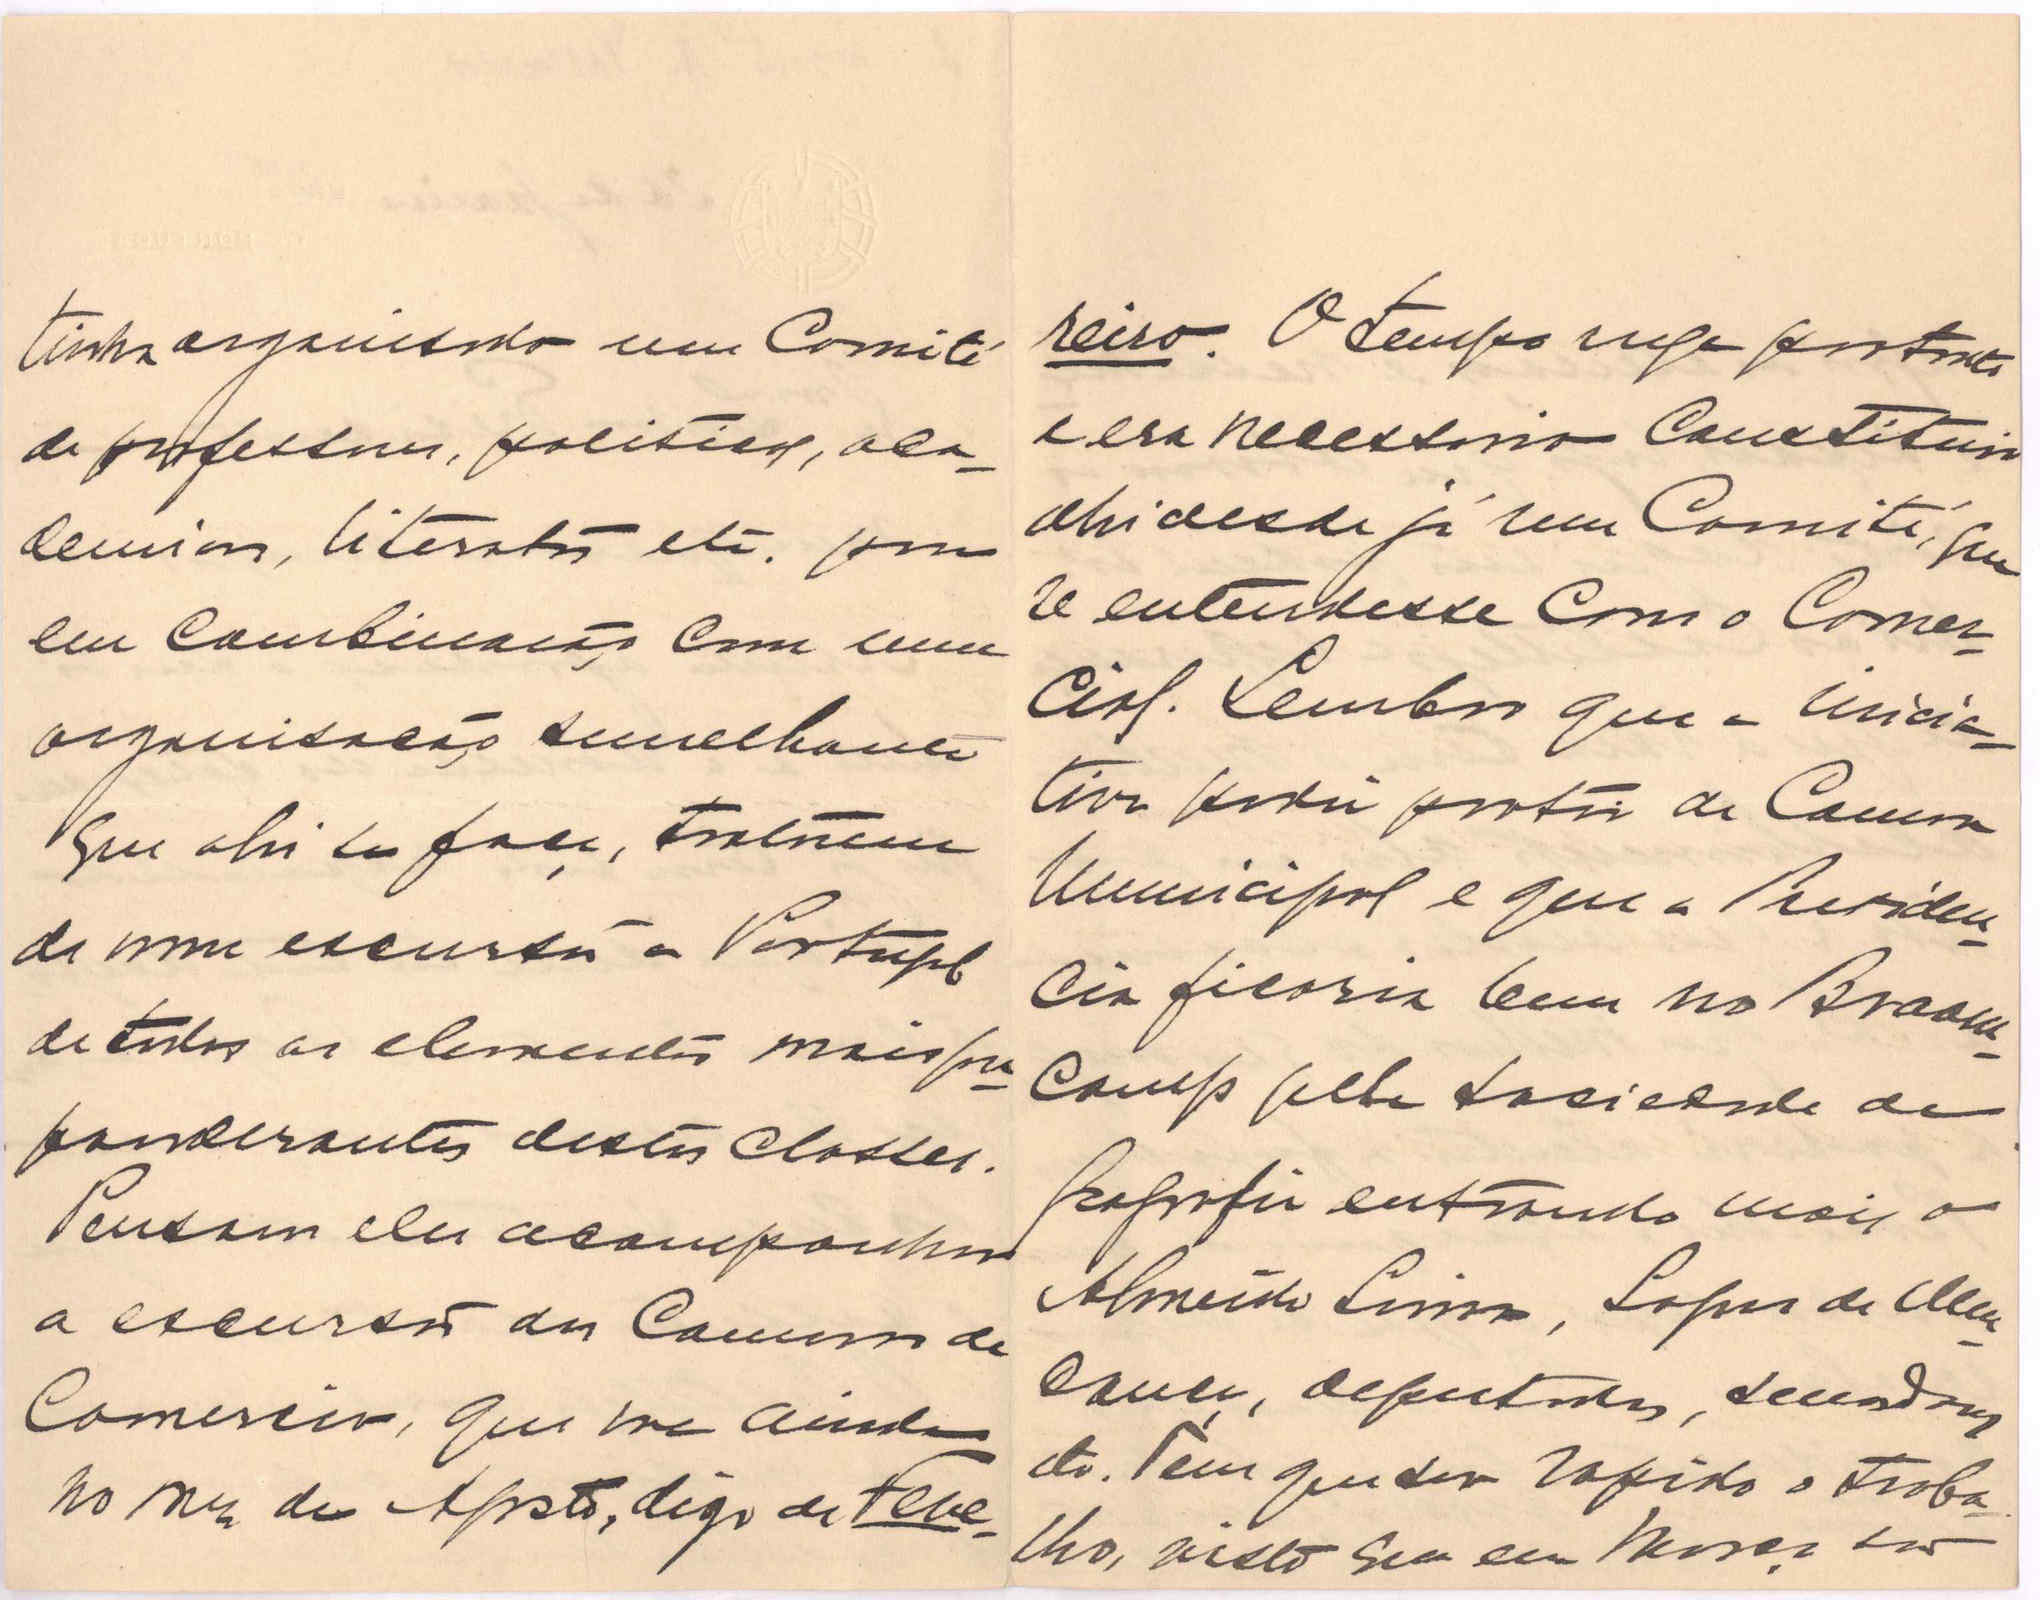 tinha organisado um Comité
de professores, politicos, aca-
demicos, literatos etc. para
em combinação com uma
organisação semelhante
que ahi se faça, tratarem
de uma escursão a Portugal
de todos os elementos mais pre-
ponderantes destas classes.
Pensam eles acompanhar
a escursão das Camaras de
Comercio, que vae ainda
no mez de Agosto, digo de Feve-
reiro. O tempo urge portanto
e era necessario Constituir
ahi desde já um Comité, que
se entendesse com o Comer-
cial. Lembro que a inicia-
tiva podia partir da Camara
Municipal e que a Presiden-
cia ficaria bem no Braam-
camp pela Sociedade de
Geografia entrando mais o
Almeida Lima, Lopes de Men-
donça, deputados, senadores
etc. Tem que ser rapido o traba-
lho, visto que em Março são